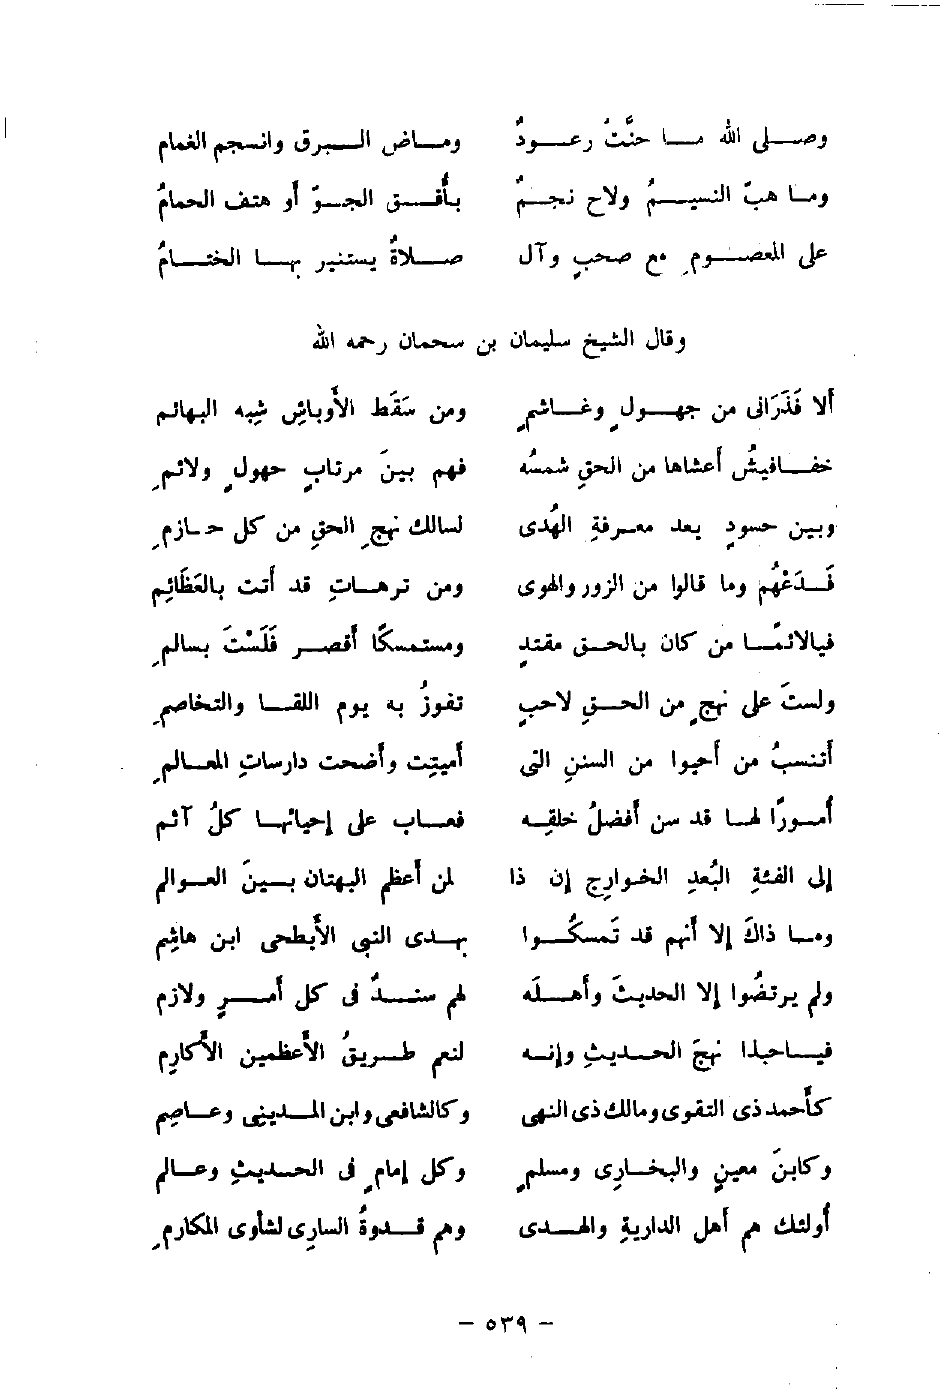 وصلى الله ما حنَّتُ رعودٌ ومـاض البرق وانسجم الغمام
وما هبّ النسيمُ ولاح نجمٌ بأُفق الجوّ أو هتف الحمامُ
على المعصومِ مع صحبٍ وآل صلاةٌ يستنير بها الختامُ
وقال الشيخ سليمان بن سحمان رحمه الله
ألا فَذَرَانى من جهولٍ وغاشمٍ ومن سَقَط الأَوباشِ شِبه البهائم
خفافيشُ أعشاها من الحقِ شمسُه فهم بينَ مرتابٍ جهولٍ ولائمِ
وبين حسودٍ بعد معرفةِ الهُدى لسالك نهجِ الحقِ من كل حازمِ
فَدَعْهُم وما قالوا من الزور والهوى ومن ترهاتِ قد أتت بالعَظَائِم
فيالائمًا من كان بالحق مقتدٍ ومستمسكًا أقصر فَلَسْتَ بسالمِ
ولستَ على نهجٍ من الحقِ لاحبٍ تفوزُ به يوم اللقا والتخاصمِ
أتنسبُ من أحيوا من السننِ التى أميتِت وأضحت دارساتِ المعالمِ
أمورًا لها قد سن أفضلُ خلقِه فعاب على إحيائها كلُ آثم
إلى الفئةِ البُعدِ الخوارجِ إن ذا لمن أعظم البهتان بينَ العوالم
وما ذاكَ إلا أنهم قد تَمسكُوا بهدى النبى الأَبطحى ابن هاشِم
ولم يرتضُوا إلا الحديثَ وأهلَه لهم سندٌ فى كل أمرٍ ولازم
فياحبذا نهجَ الحديثِ وإنه لنعم طريقُ الأَعظمين الأَكارِم
كأَحمد ذى التقوى ومالك ذى النهى وكالشافعى وابن المدينى وعاصِم
وكابنَ معينٍ والبخارِى ومسلمٍ وكل إمامٍ فى الحديثِ وعالم
أولئك هم أهل الدارية والهدى وهم قدوةُ السارِى لشأوى المكارمِ
– ٥٣٩ –